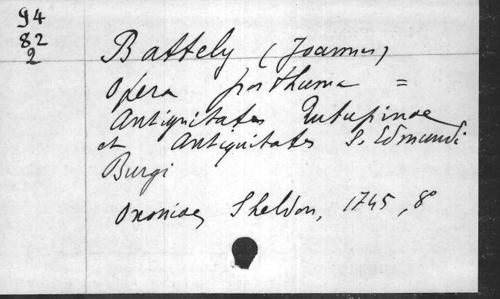 94
82
2
Battely (Joannes)
Opera posthuma =
Antiquitates Rutupinae
et Antiquitates S. Edmundi
Burgi
Oxoniae, Sheldon, 1745, 8°